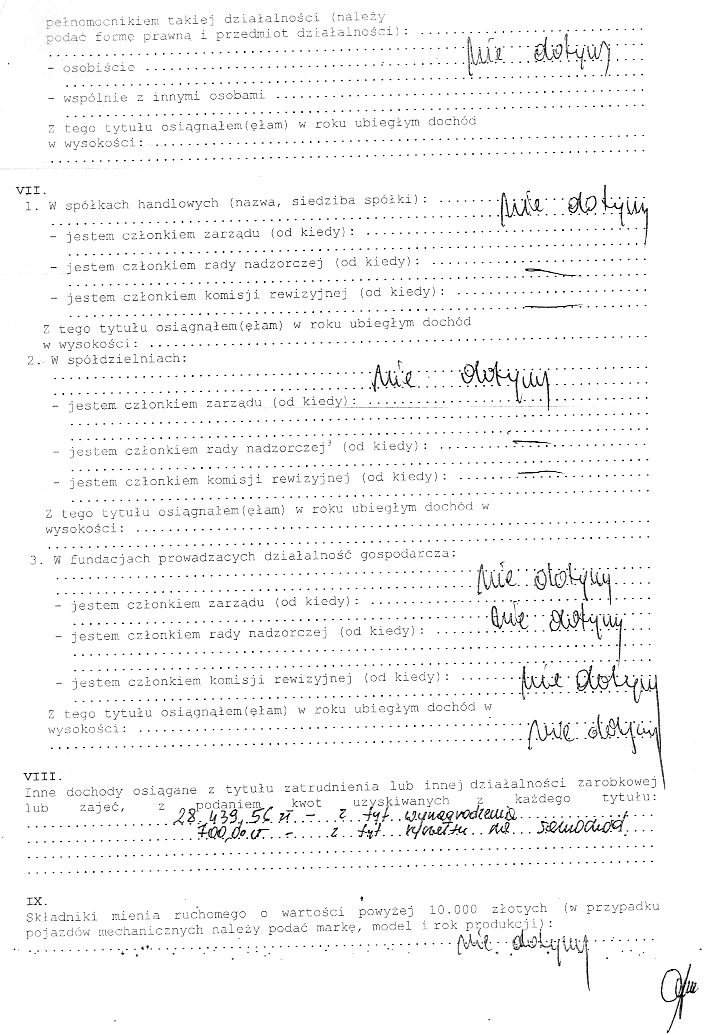 pełnomocnikiem takiej działalności (należy
podać formę prawną i przedmiot działalności):
nie dotyczy
- osobiście
- wspólnie z innymi osobami
Z tego tytułu osiągnąłem(ęłam) w roku ubiegłym dochód
w wysokości:
VII.
1. W spółkach handlowych (nazwa, siedziba spółki): nie dotyczy
- jestem członkiem zarządu (od kiedy):
- jestem członkiem rady nadzorczej (od kiedy): —
- jestem członkiem komisji rewizyjnej (od kiedy): —
Z tego tytułu osiągnąłem(ęłam) w roku ubiegłym dochód
w wysokości:
2. W spółdzielniach:
nie dotyczy
- jestem członkiem zarządu (od kiedy):
- jestem członkiem rady nadzorczej³ (od kiedy): —
- jestem członkiem komisji rewizyjnej (od kiedy): —
Z tego tytułu osiągnąłem(ęłam) w roku ubiegłym dochód w
wysokości:
3. W fundacjach prowadzących działalność gospodarczą:
nie dotyczy
- jestem członkiem zarządu (od kiedy):
nie dotyczy
- jestem członkiem rady nadzorczej (od kiedy):
- jestem członkiem komisji rewizyjnej (od kiedy): nie dotyczy
Z tego tytułu osiągnąłem(ęłam) w roku ubiegłym dochód w
wysokości: nie dotyczy
VIII.
Inne dochody osiągane z tytułu zatrudnienia lub innej działalności zarobkowej
lub zajęć, z podaniem kwot uzyskiwanych z każdego tytułu:
28.439,56 zł - z tyt wynagrodzenia
700,00 zł - z tyt ryczałtu na samochód
IX.
Składniki mienia ruchomego o wartości powyżej 10.000 złotych (w przypadku
pojazdów mechanicznych należy podać markę, model i rok produkcji):
nie dotyczy